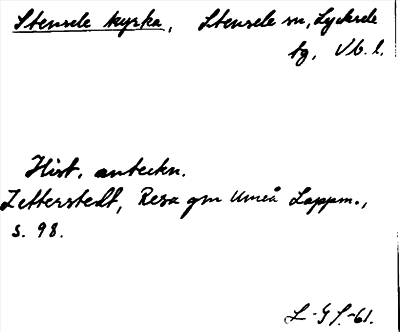 Stensele kyrka, Stensele sn, Lycksele
tg, Vb. l.
Hist. anteckn.
Zetterstedt, Resa gm Umeå Lappm.,
s. 98.
L-G S.-61.